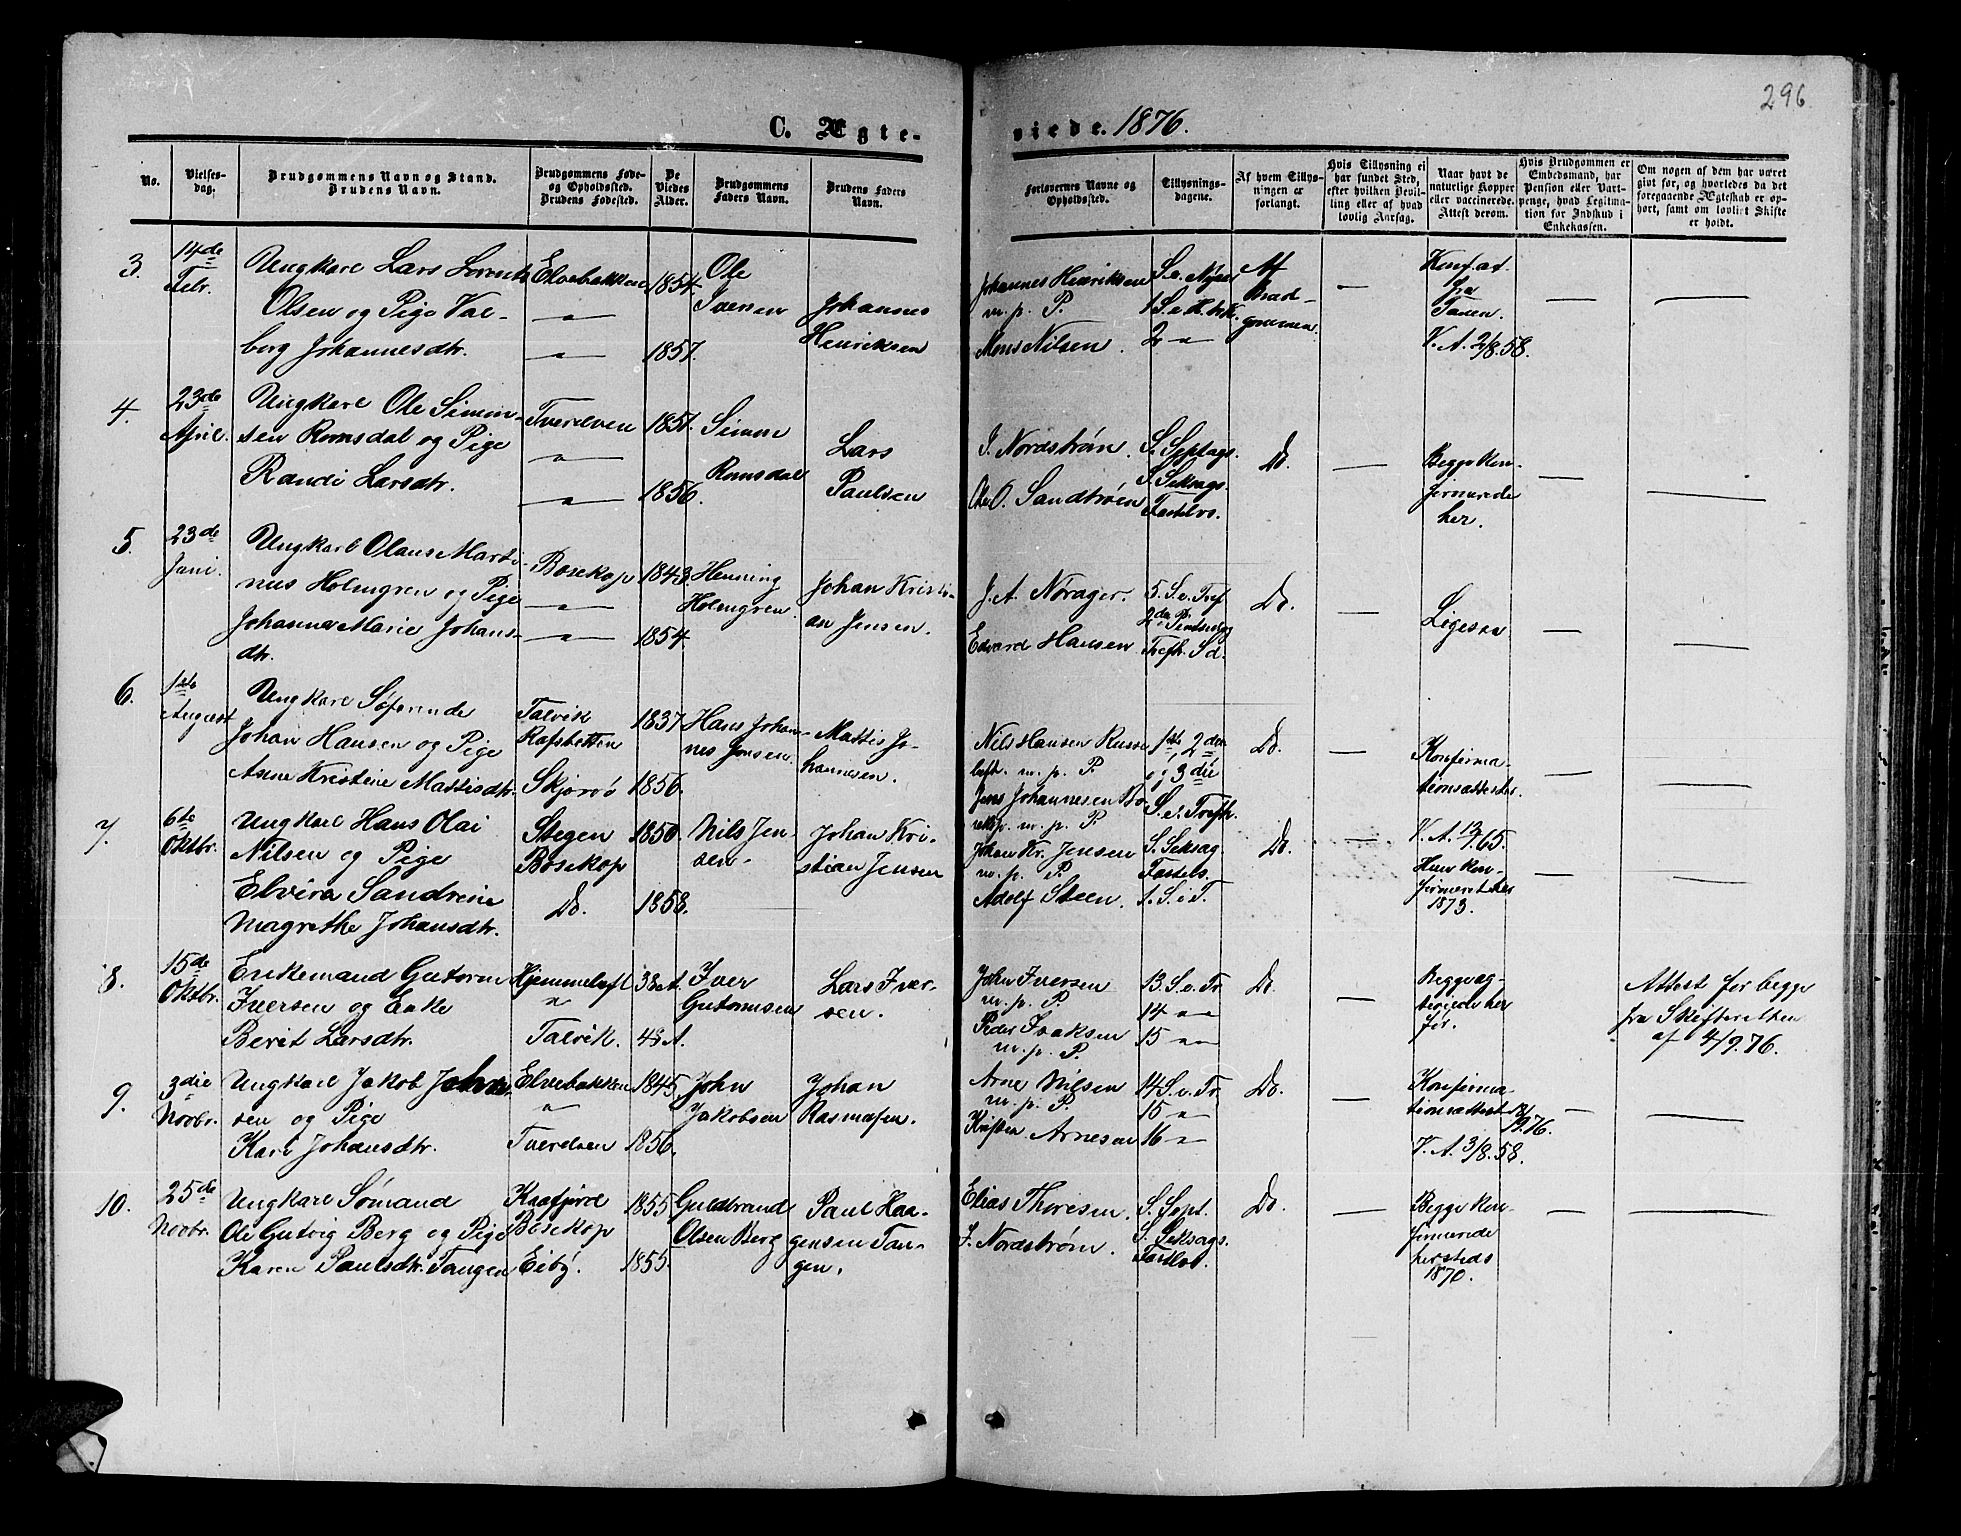 296.
C. Ægte-
viede. 1876.
No.
Vielses-
dag.
Brudgommens Navn og Stand.
Brudens Navn.
Brudgommens Føde-
og Opholdssted.
Brudens Fødested.
De
Viedes
Alder.
Brudgommens
Faders Navn.
Brudens Faders
Navn.
Forlovernes Navne og
Opholdssted.
Tillysnings-
dagene.
Af hvem Tillys-
ningen er
forlangt.
Hvis Tillysning ei
har fundet Sted,
efter hvilken Bevil-
ling eller af hvad
lovlig Aarsag.
Naar havt de
naturlige Kopper
eller vaccinerede.
Attest derom.
Hvis Brudgommen er
Embedsmand, har
Pension eller Vart-
penge, hvad Legitima-
tion for Indskud i
Enkekassen.
Om nogen af dem har været
givt før, og hvorledes da det
foregaaende Ægteskab er op-
hørt, samt om lovligt Skifte
er holdt.
3.
14de
Febr.
Ungkarl Lars Lorents
Olsen og Pige Val-
borg Johannesdtr.
Elvebakken
—"—
—"—
1854.
1857.
Ole
Iversen
Johannes
Henriksen
Johannes Henriksen
m. p. P.
Mons Nilsen.
S. e. Nyaar
1 S. e. H. 3 K.
2 —"—
Af
Brud-
gommen.
—
Konf. at.
fra
Tanen.
V. A. 2/8. 58.
—
—
4.
23de
April.
Ungkarl Ole Simon-
sen Romsdal og Pige
Randi Larsdtr.
Tverelven
—"—
—"—
1851.
1856.
Simon
Romsdal
Lars
Paulsen
J. Nordstrøm.
Ole O. Sandstrøm
S. Septags.
S. Seksags.
Fastelvs.
Do.
—
Begge kon-
firmerede
her.
—
—
5.
23de
Juni.
Ungkarl Olaus Marti-
nus Holmgren og Pige
Johanna Marie Johans-
dtr.
Bosekop
—"—
—"—
1843.
1854.
Henning
Holmgren.
Johan Kristi-
an Jensen.
J. A. Nørager.
Edvard Hansen
5. S. e. Tref.
2den Pintsedag
Trefh. Sd.
Do.
—
Ligesaa
—
—
6.
1ste
August
Ungkarl Søfarende
Johan Hansen og Pige
Anne Kristine Mattisdtr.
Talvik
Rafsbotten
Skjervø
1837
1856.
Hans Johan-
nes Jensen.
Mattis Jo-
hannesen.
Nils Hansen Russe
luft. m. p. P.
Jens Johannesen Bo
sekp. m. p. P.
1ste, 2den
og 3die
S. e. Trefh.
Do.
—
Konfirma-
tionsattester.
—
—
7.
6te
Oktbr.
Ungkarl Hans Olai
Nilsen og Pige
Elvira Sandrine
Magrethe Johansdtr.
Stegen
Bosekop
Do.
1850.
1858.
Nils Jen-
sen.
Johan Kri-
stian Jensen
Johan Kr. Jensen
m. p. P.
Adolf Steen.
S. Seksag.
Fastels.
1. S. i F.
Do.
—
Hun kon-
firmeret her
1873.
—
—
8.
15de
Oktbr.
Enkemand Gutorm
Iversen og Enke
Berit Larsdtr.
Hjemmeluft
"
Talvik.
38 A.
43 A.
Iver
Gutormsen
Lars Iver-
sen.
John Iversen
m. p. P.
Peder Isaksen
m. p. P.
13. S. e. Tr.
14 —"—
15 —"—
Do.
—
Begge vac-
før.
Attest for begge
fra Skifteretten
af 4/9. 76.
9.
3die
Novbr.
Ungkarl Jakob Johan-
sen og Pige
Kari Johansdtr.
Elvebakken
"
Tverelven
1845.
1856.
John
Jakobsen
Johan
Rasmusen.
Arne Nilsen
m. p. P.
Kristen Arnesen
14 S. e. Tr.
15 —"—
16 —"—
Do.
—
Konfirma-
tionsattest 18/
V. A. 3/8. 58.
—
—
10.
25de
Novbr.
Ungkarl Sømand
Ole Gutvig Berg og Pige
Karen Paulsdtr. Tangen
Kaafjord
Bosekop
Eiby.
1855
1855.
Guldbrand
Olsen Berg
Paul Haa-
gensen Tan-
gen.
Elias Thoresen.
J. Nordstrøm.
S. Sept.
S. Seksags.
Fastlvs.
Do.
—
Begge kon-
firmerede
hersteds
1870.
—
—